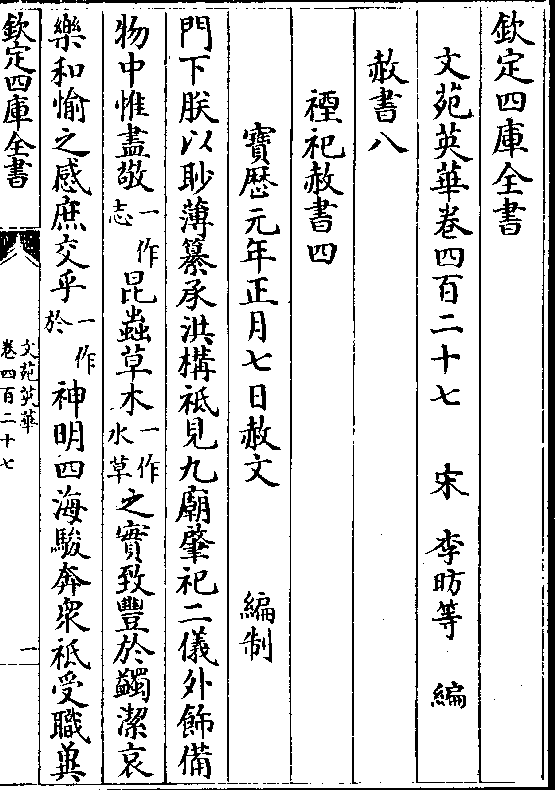 欽定四庫全書
文苑英華卷四百二十七　宋　李昉等　編
赦書八
禋祀赦書四
寳歴元年正月七日赦文　編制
門下朕以眇薄纂承洪構祗見九廟肇祀二儀外飾備
物中惟盡敬一作志昆蟲草木一作水草之實致豐於蠲潔哀
樂和愉之感庶交乎一作於神明四海駿奔衆祗受職兾
欽定四庫全書
文苑英華
卷四百二十七
一